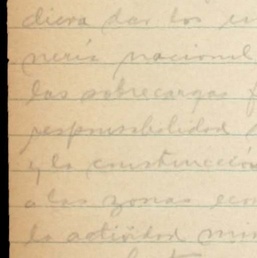 diera dar los es
nería nacional
las sobrecargas f
responsabilidad
y la construcción
a las zonas econ
la actividad min